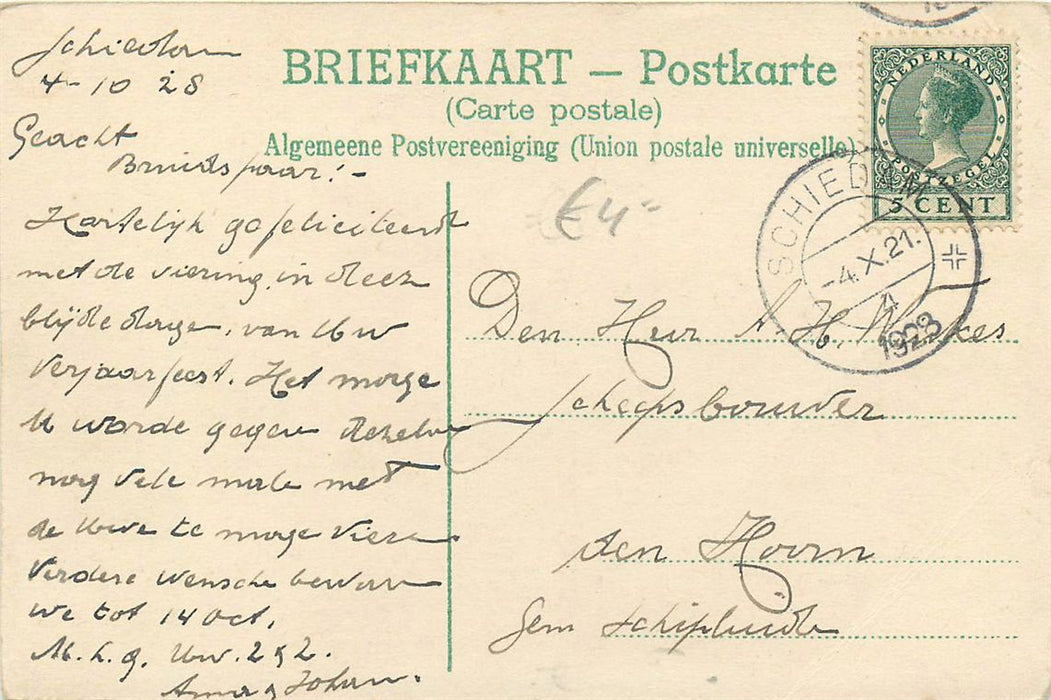 BRIEFKAART – Postkarte
(Carte postale)
Algemeene Postvereeniging (Union postale universelle)
NEDERLAND
POSTZEGEL
5 CENT
SCHIEDAM
-4.X.21.
4
1928
€4-
Schiedam
4-10 28
Geacht
Bruidspaar!-
Hartelijk gefeliciteerd
met de viering in deez
blijde dage, van Uw
Verjaarfeest. Het moge
U worde gegeve
nog vele male met
de Uwe te moge viere
Verdere wensche beware
we tot 14 Oct.
M. h. g. Uw. 2 g 2.
Anna g Johan.
Den Heer A. H.
Scheepsbouwer
den Hoorn
Gem Schipluide